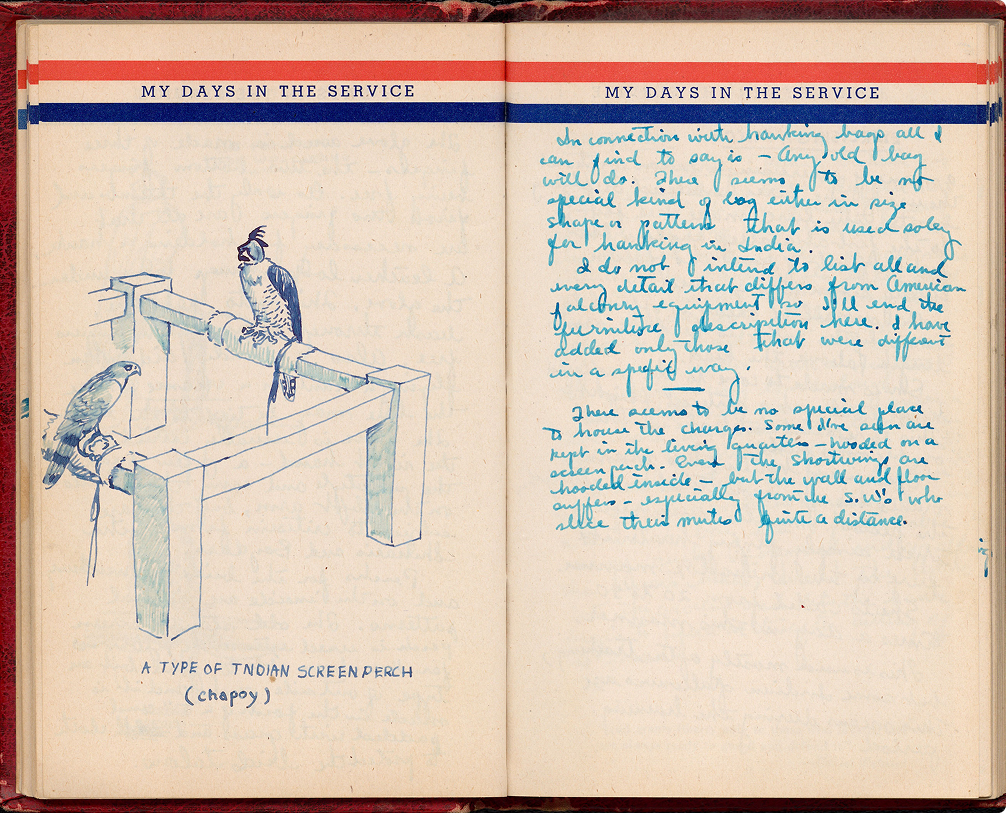 MY DAYS IN THE SERVICE
A TYPE OF INDIAN SCREEN PERCH
(chapoy)
MY DAYS IN THE SERVICE
In connection with hawking bags all I
can find to say is – Any old bag
will do. There seems to be no
special kind of bag either in size
shape or pattern that is used soley
for hawking in India.
I do not intend to list all and
every detail that differs from American
falconry equipment so I'll end the
furniture description here. I have
added only those that were different
in a specific way.
There seems to be no special place
to house the charges. Some I've seen are
kept in the living quarters – hooded on a
screen perch. Even the shortwings are
hooded inside – but the wall and floor
suffers – especially from the S.W's who
slice their mutes quite a distance.